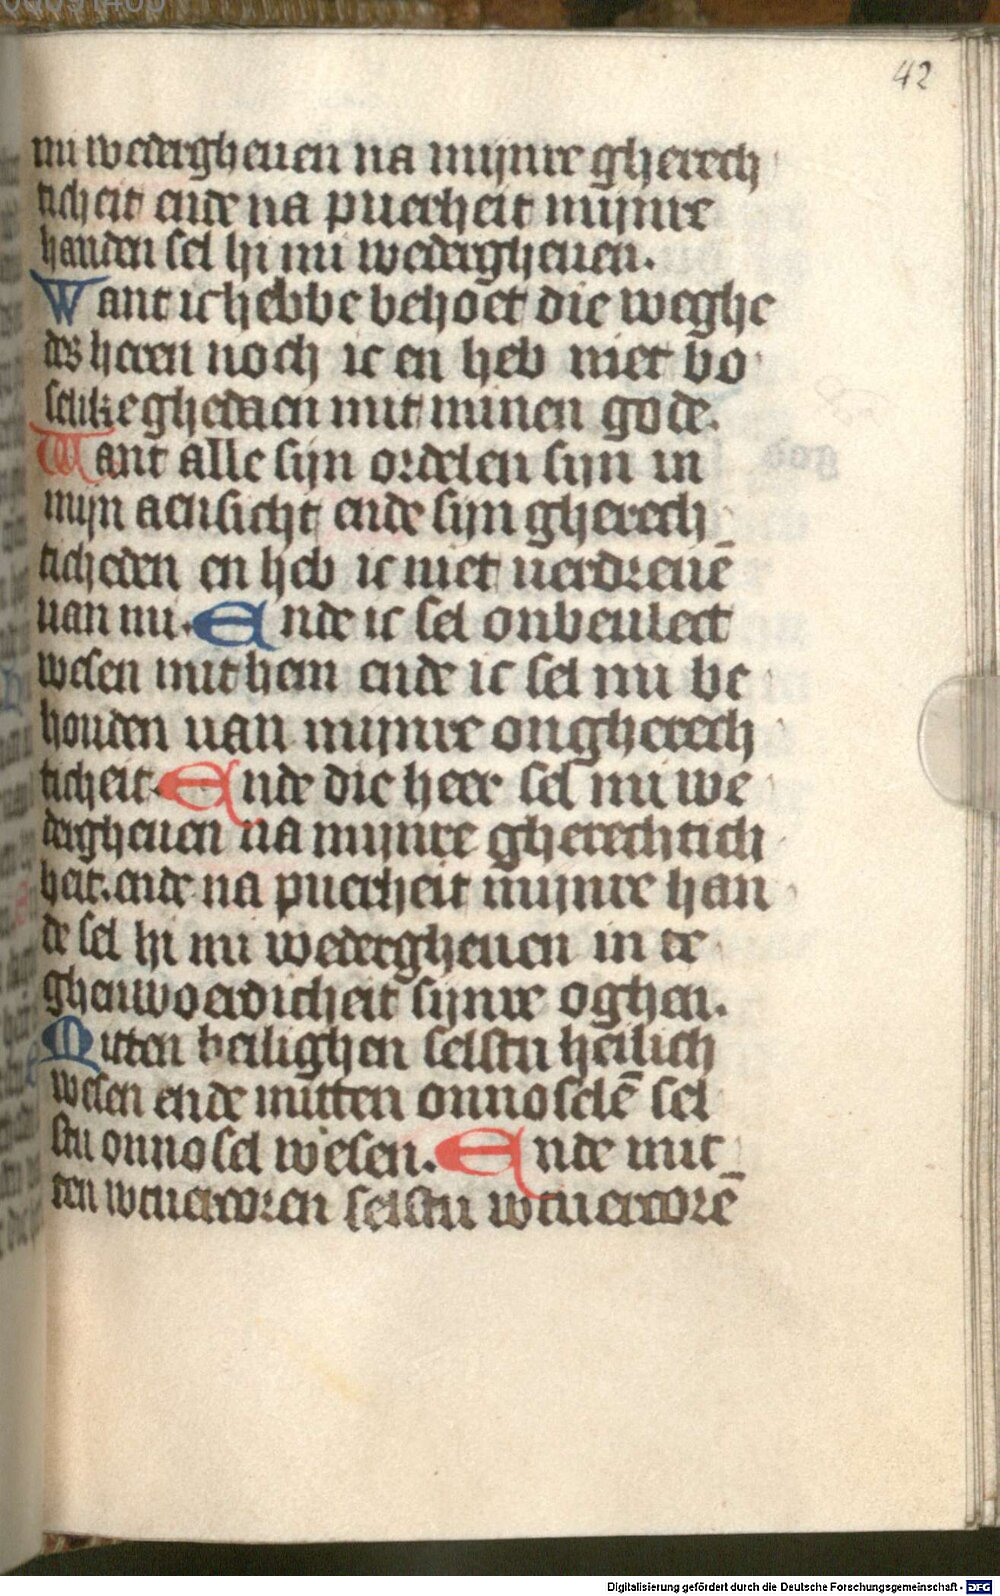 42
mi wedergheuen na mijnre gherech
ticheit ende na puerheit mijnre
handen sel hi mi wedergheuen.
Want ic hebbe behoet die weghe
des heren noch ic en heb niet bo
selike ghedaen mit minen gode.
Want alle sijn ordelen sijn in
mijn aensicht ende sijn gherech
ticheden en heb ic niet uerdreuē
uan mi. Ende ic sel onbeulect
wesen mit hem ende ic sel mi be
houden uan mijnre ongherech
ticheit. Ende die heer sel mi we
dergheuen na mijnre gherechtich
heit. ende na puerheit mijnre han
de sel hi mi wedergheuen in te
ghenwoerdicheit sijnre oghen.
Mitten heilighen selstu heilich
wesen ende mitten onnoselē sel
stu onnosel wesen. Ende mit
ten wtuercoren selstu wtuercorē
Digitalisierung gefördert durch die Deutsche Forschungsgemeinschaft - DFG